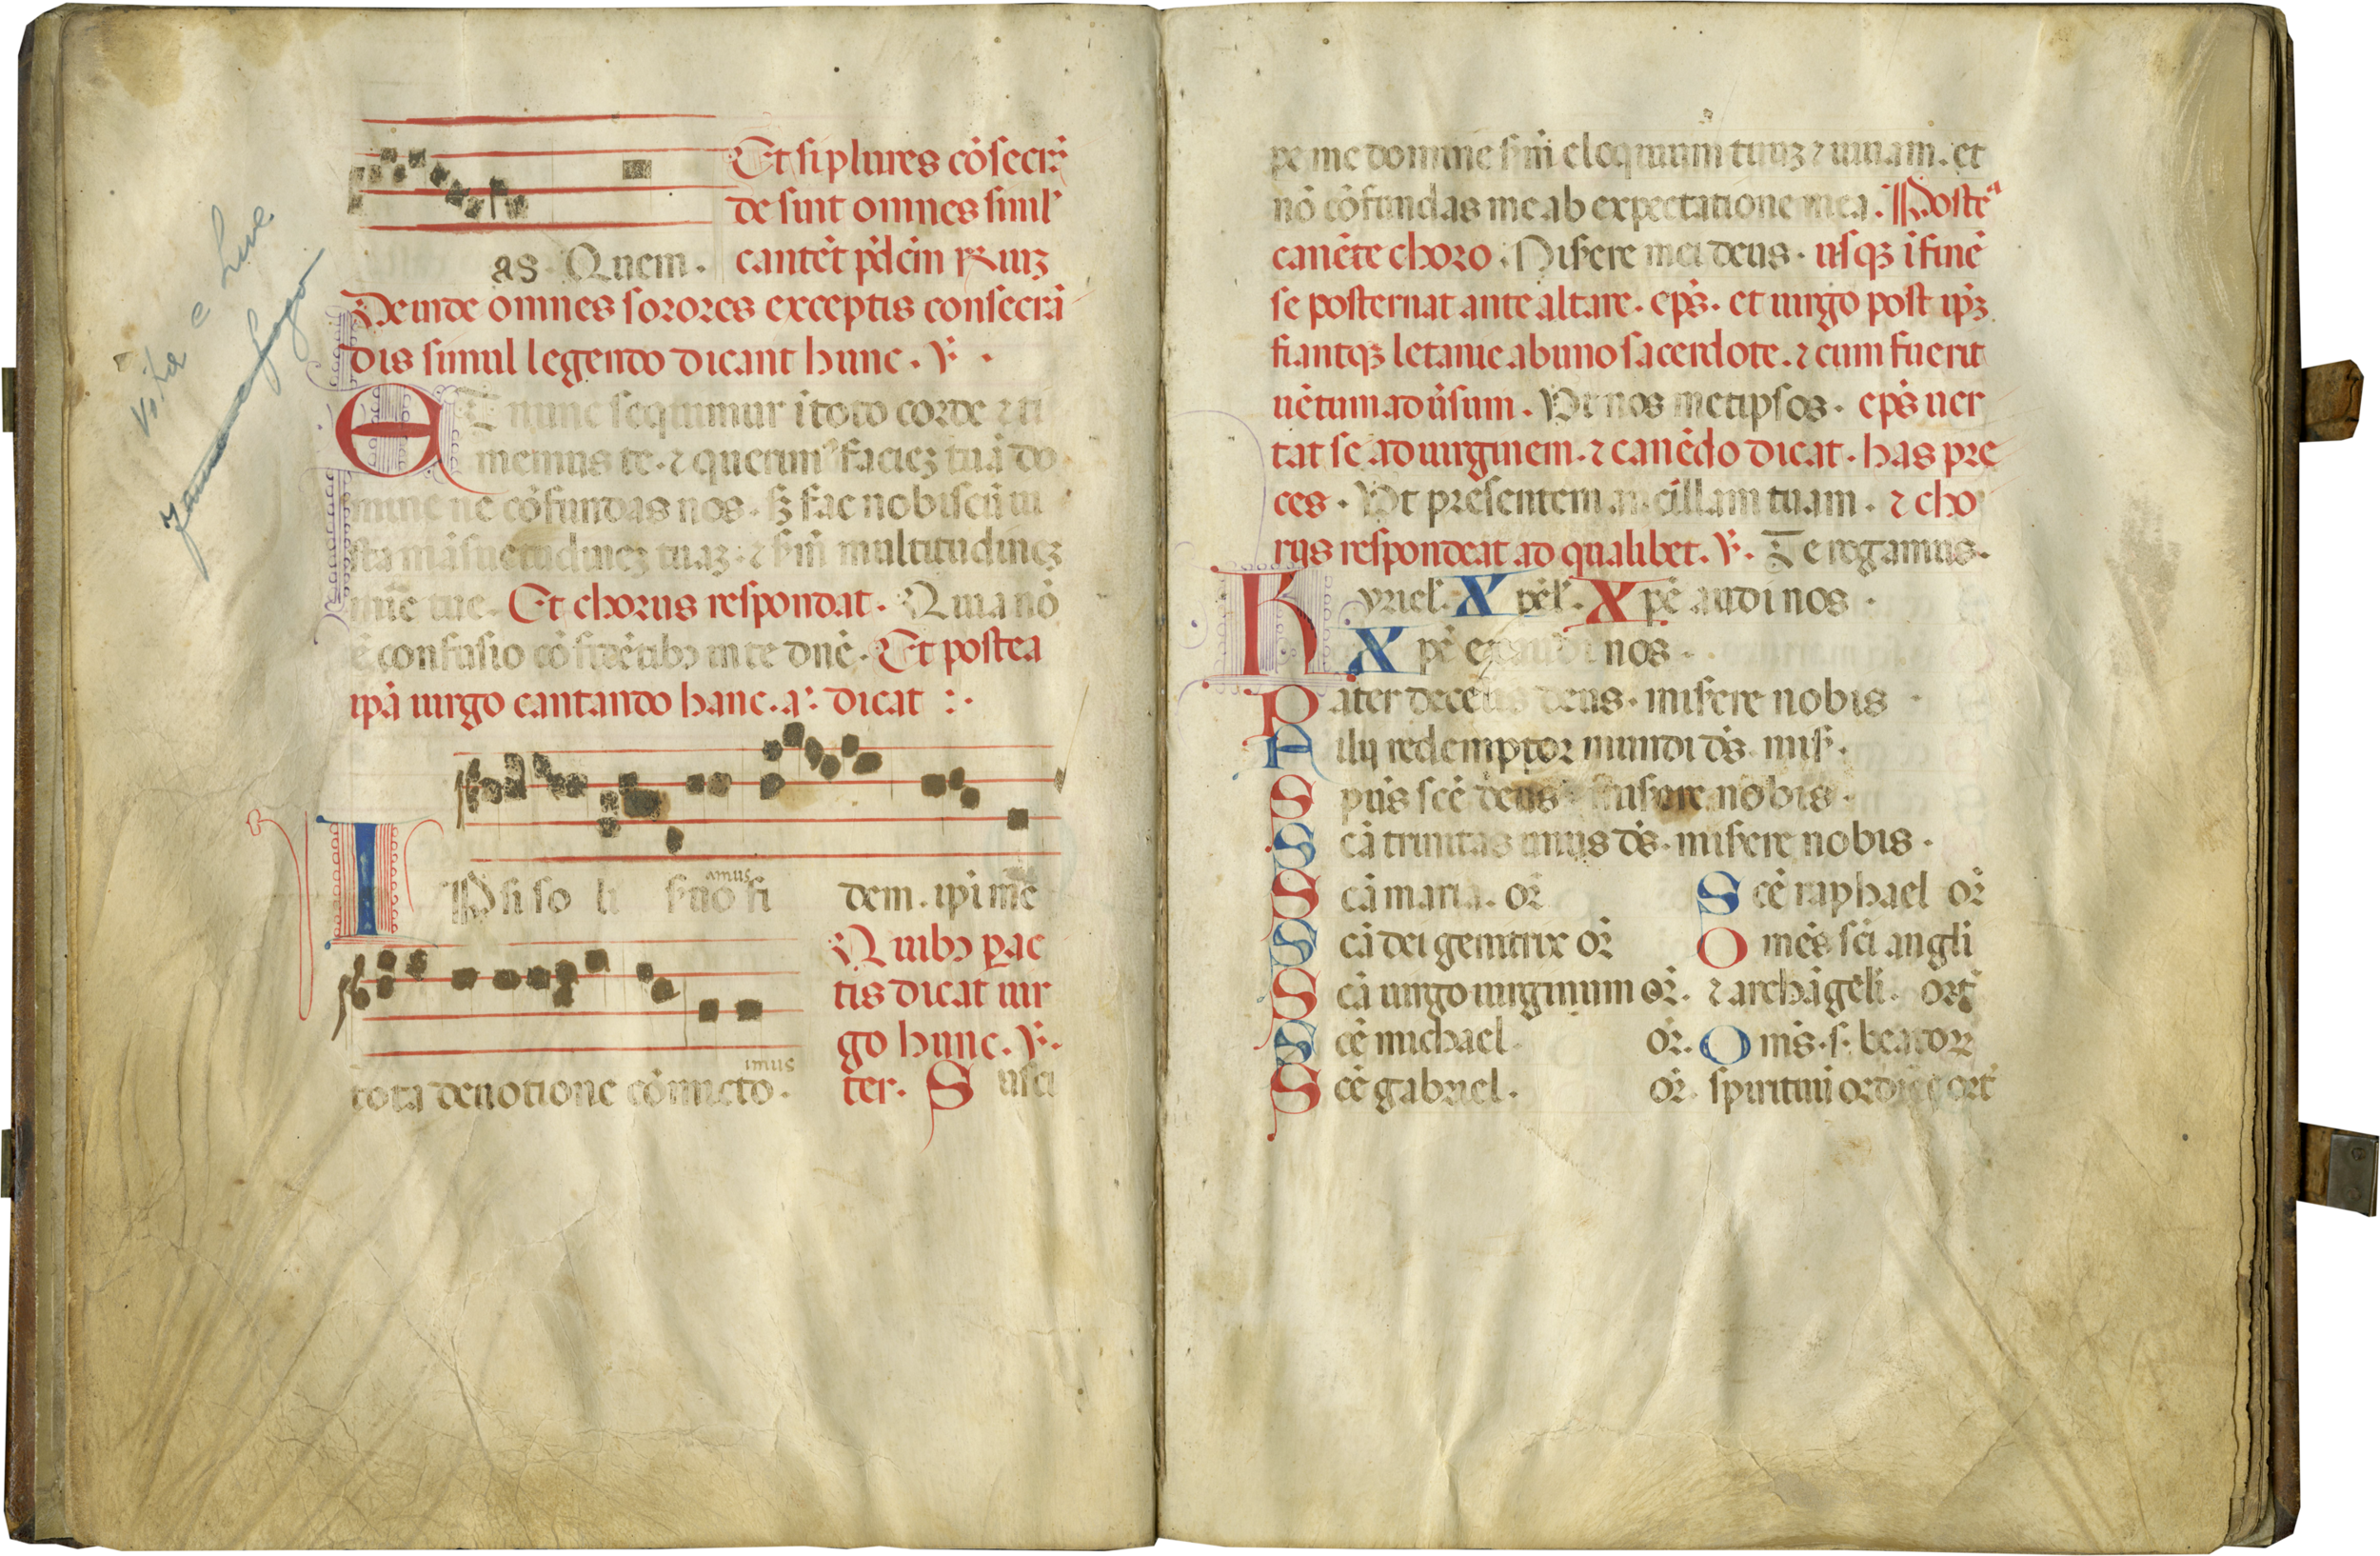 Et si plures cōsecrā
de sint omnes simul
as. Quem. cantēt p̄dcm̄ ℟ uiz
Deinde omnes sorores exceptis consecrā
dis simul legendo dicant hunc. ℣.
ET nunc sequimur ī toto corde ⁊ ti
memus te. ⁊ querim᷒ faciez tuā do
mine ne cōfundas nos. sꝫ fac nobiscū iu
sta māsuetudinez tuaz. ⁊ sm̄ multitudinez
mīe tue. Et chorus respondat. Quia nō
ē confusio cōfidētibꝫ in te dnē. Et postea
ipā uirgo cantando hanc. a᷒. dicat :.
amus
IPsi so li seruo fi dem. ipi mē
Quibꝫ ꝑac
tis dicat uir
go hunc. ℣.
imus
tota deuotione cōmicto. ter. Susci
pe me domine sm̄ eloquium tuuz ⁊ uiuam. et
nō cōfundas me ab expectatione mea. Postea
canēte choro. Misere mei deus. usqꝫ ī finē
se posternat ante altare. ep̄s. et uirgo post ip̄z
fiantqꝫ letanie ab uno sacerdote. ⁊ cum fuerit
uētum ad ūsum. Ut nos metipsos. ep̄s uer
tat se ad uirginem. ⁊ canēdo dicat. has pre
ces. Ut presentem ancillam tuam. ⁊ cho
rus respondeat ad qualibet. ℣. Te rogamus.
Kyriel̄. Xp̄el̄. Xp̄e audi nos.
Xp̄e exaudi nos.
Pater de celis deus. misere nobis
Filij redemptor mundi d̄s. mis̄.
Sp̄us sc̄e deus misere nobis.
Sc̄a trinitas unus d̄s. misere nobis.
Sc̄a maria. or̄
Sc̄a dei genitrix or̄
Sc̄a uirgo uirginum or̄.
Sc̄e michael. or̄.
Sc̄e gabriel. or̄.
Sc̄e raphael or̄
Omēs sc̄i angl̄i
⁊ archāgeli. ort̄
Om̄s. s. beatoꝝ
spirituū ordīes ort̄